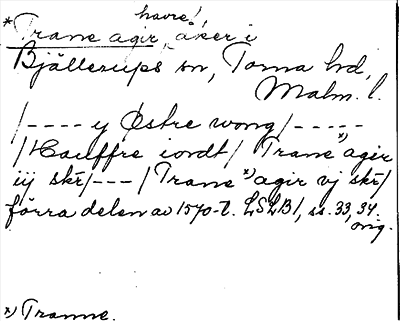 havre!,
*Trane agir, åker i
Bjällerups sn, Torna hd,
Malm. l.
/---- y Østre wong/-----
/Haffre iordt/ Trane x) agir
iij skr/---/Trane x) agir vj skr/
förra delen av 1570-t. LSLB1, ss. 33, 34.
orig.
x) Tranne.